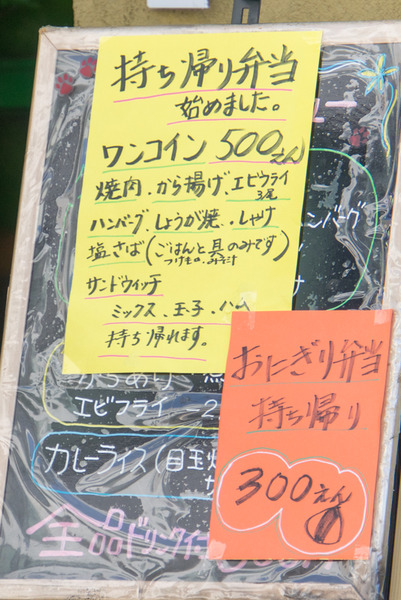 持ち帰り弁当
始めました。
ワンコイン500えん
焼肉.から揚げ.エビフライ
3尾
ハンバーグ.しょうが焼.しゃけ
塩さば(ごはんと具のみです)
つけもの.みそ汁
サンドウィッチ
ミックス.玉子.ハム
持ち帰れます。
おにぎり弁当
持ち帰り
300えん
ュー
ンバーグ
からあげ
エビフライ 2
カレーライス(目玉焼
全品ドリンク付